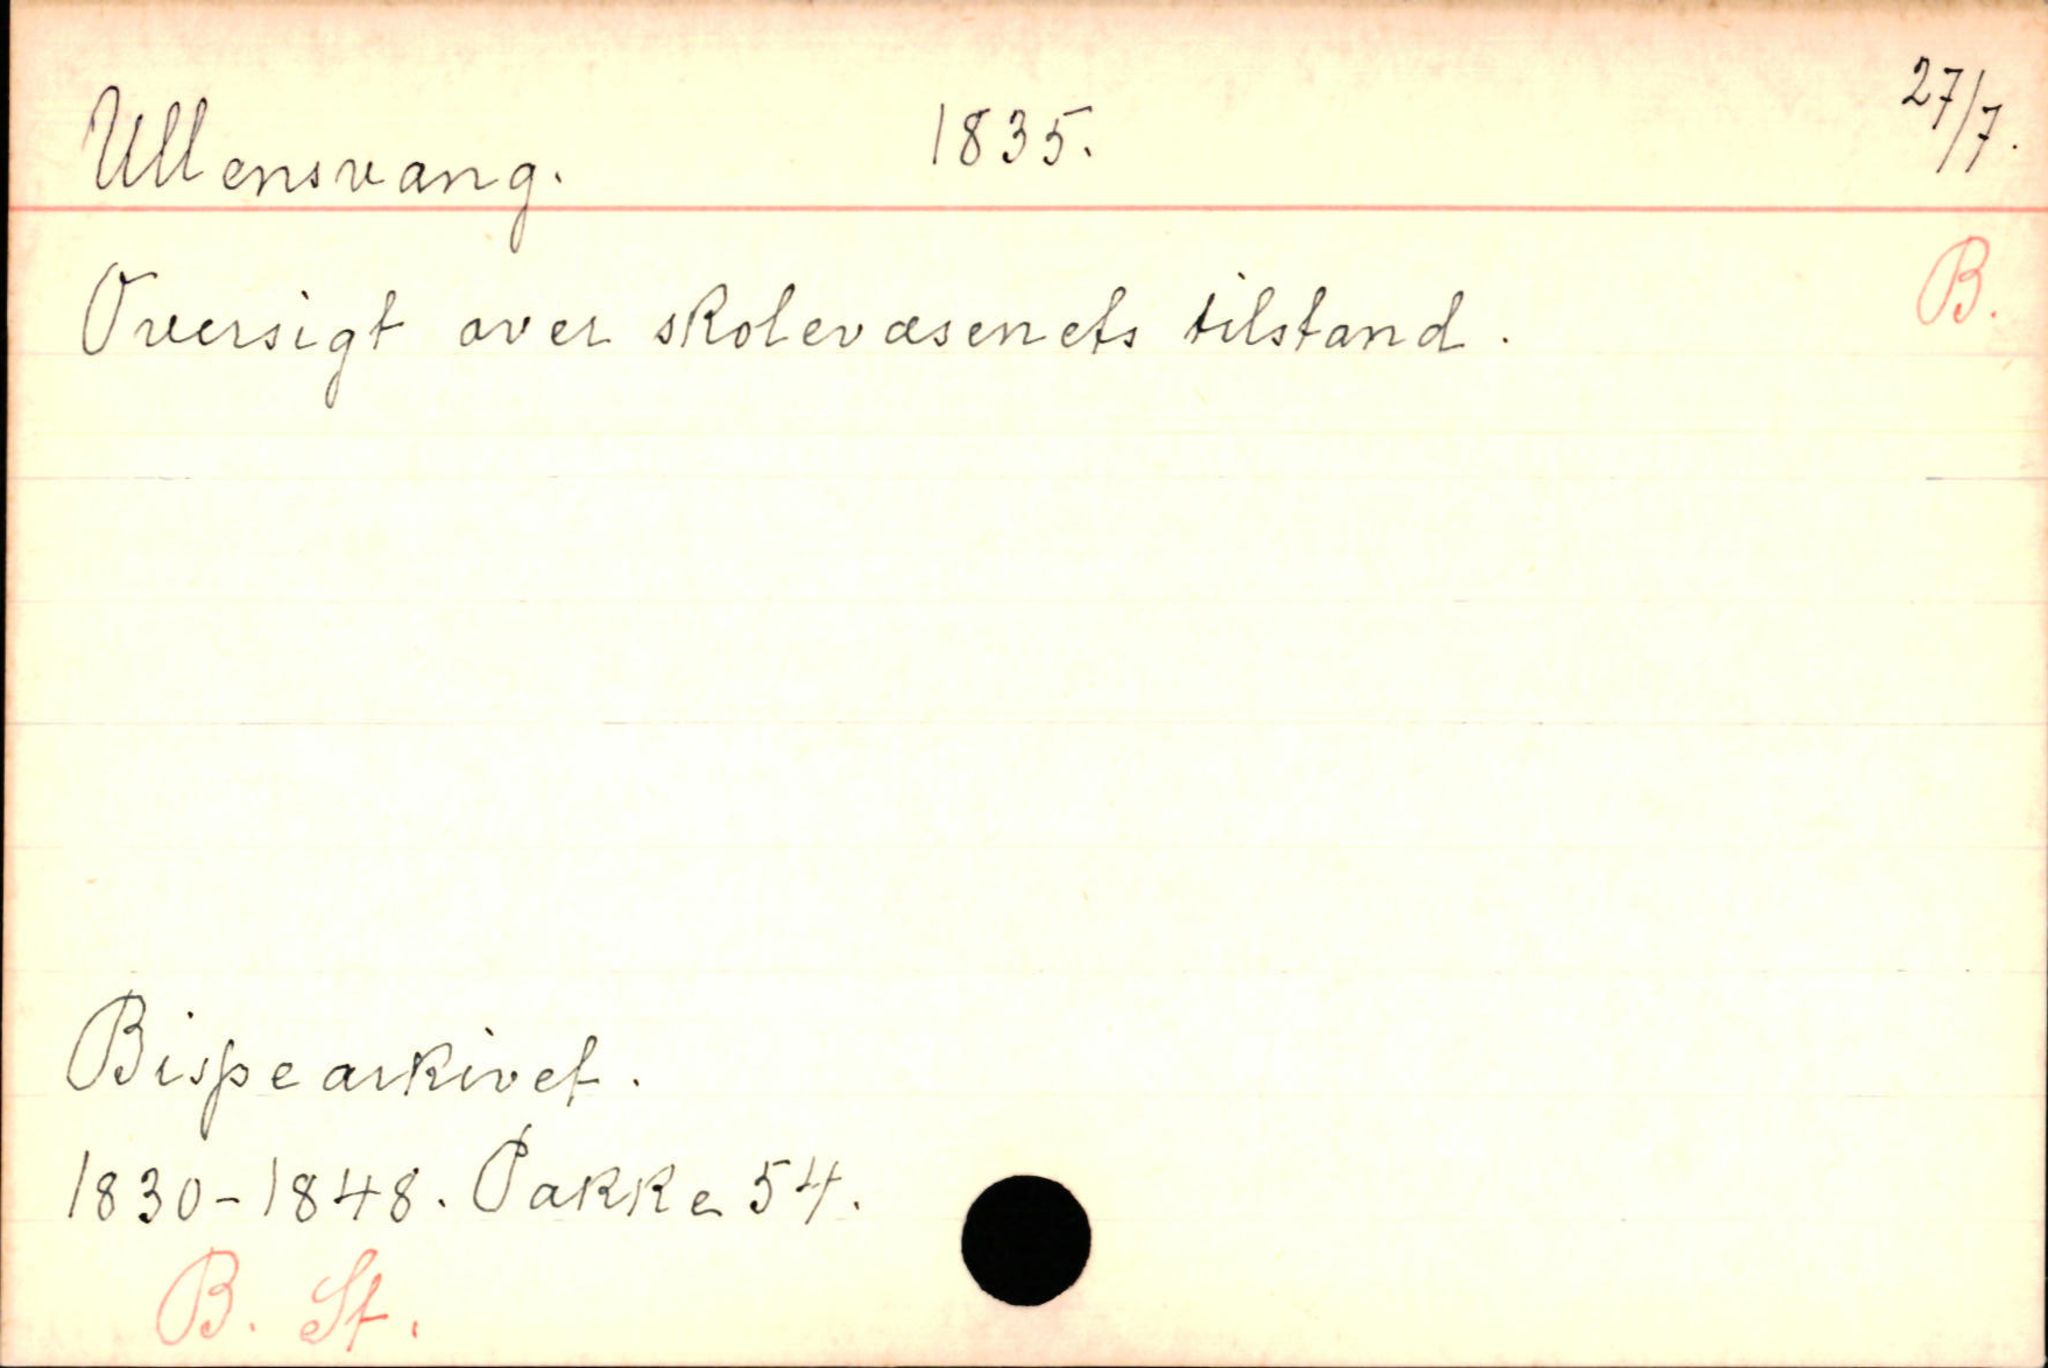 Ullensvang. 1835. 27/7.
Oversigt over skolevæsenets tilstand. B.
Bispearkivet.
1830-1848. Pakke 54.
B. St.